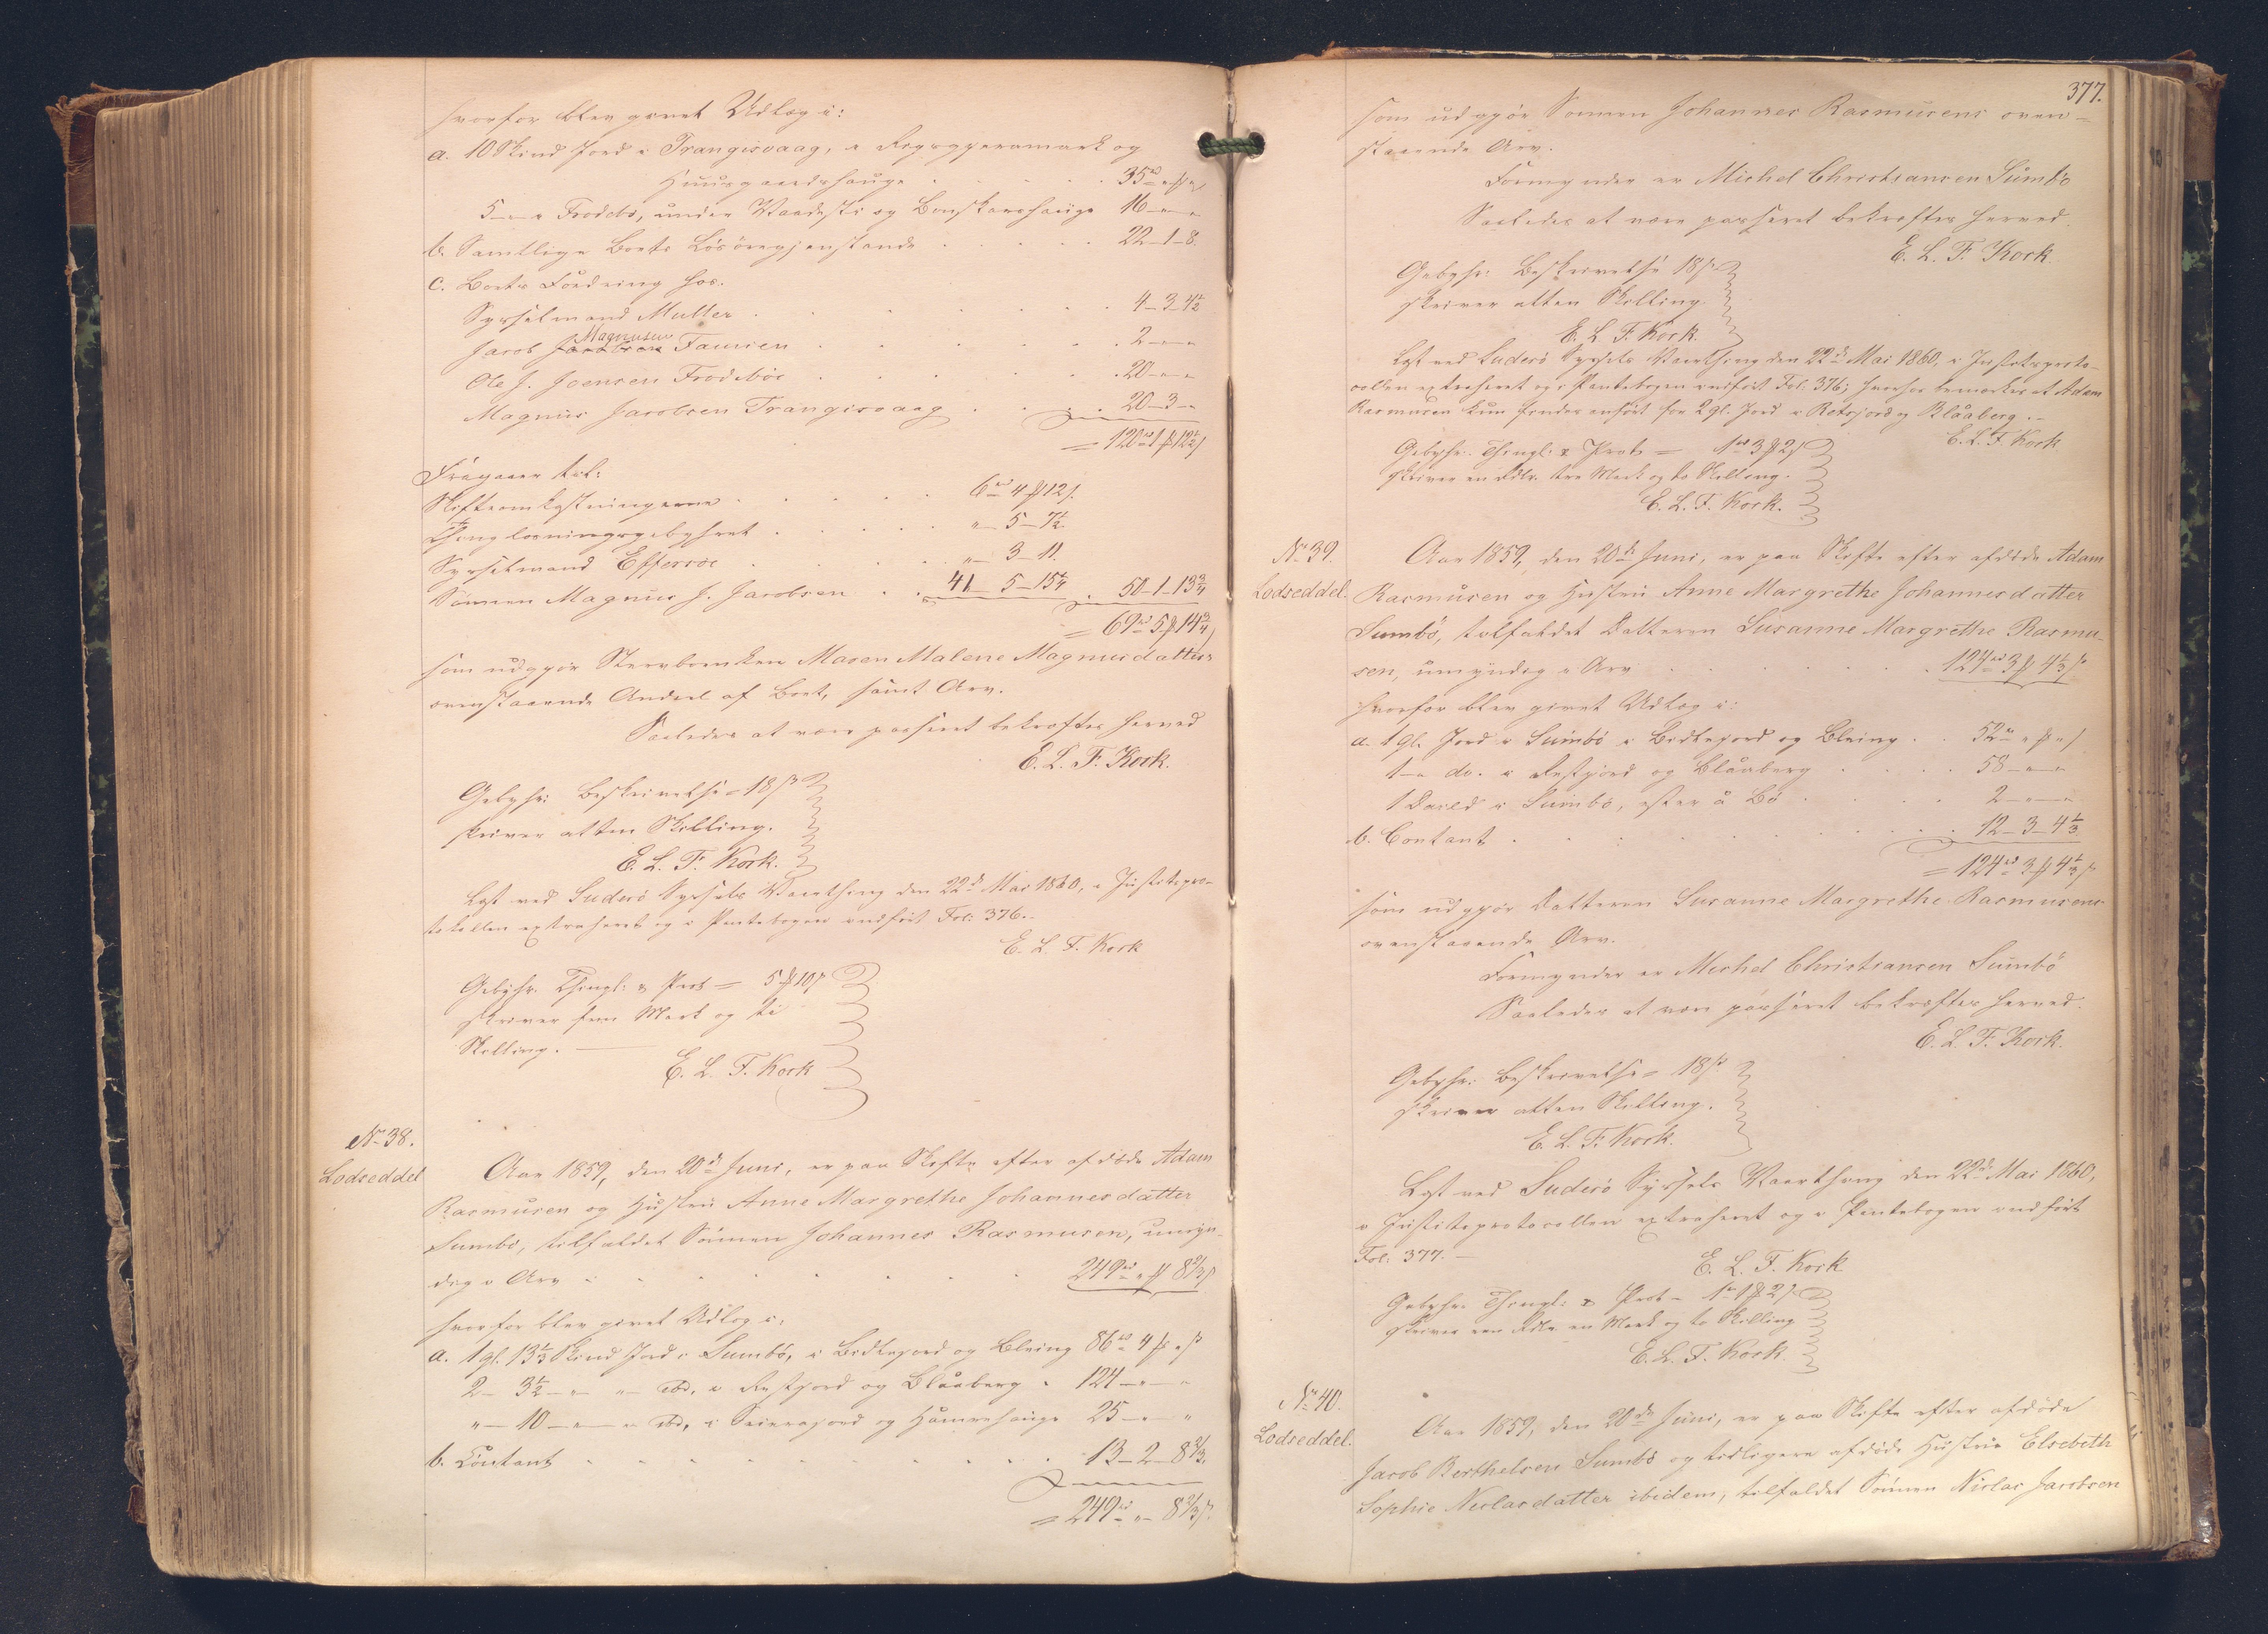 hvorfor blev givet Udlæg i:
a. 10 Skind Jord i Trangisvaag, i og
Huusgaardshauge . . . . . 35 rd „ ꝟ „ ß
5 - „ i Frodebö, under og 16 - „ - „
b. Samtlige Boets Lösöregjenstande . . . . . 22 - 1 - 8.
c. Boets Fordring hos:
Sysselmand Müller . . . . . . . 4 - 3 - 4½
Jacob Magnusen Famien . . . . . . . 2 - „ - „
Ole J. Joensen Frodeböe . . . . . . . 20 - „ - „
Magnus Jacobsen Trangisvaag . . . . 20 - 3 - „
= 120 rd 1 ꝟ 12½ ß
Fragaaer til:
Skifteomkostningerne . . . . . 6 rd 4 ꝟ 12 ß.
Thinglæsningsgebyhret . . . . . „ - 5 - 7½
Sysselmand Effersöe . . . . . „ - 3 - 11.
Sönnen Magnus J. Jacobsen . . 41 - 5 - 15¼ . 50 - 1 - 13¾
= 69 rd 5 ꝟ 14¾ ß
som udgjör Stervboenken Maren Malene Magnusdatters
ovenstaaende Andeel af Boet, samt Arv.
Saaledes at være passeret bekræftes herved
E. L. F. Kock.
Gebyhr: Beskrivelse = 18 ß
skriver atten Skilling.
E. L. F. Kock.
Læst ved Suderö Syssels Vaarthing den 22de Mai 1860, i Justitspro-
tokollen extraheret og i Pantebogen indfört Fol: 376.
E. L. F. Kock
Gebyhr. Thingl: & Prot = 5 ꝟ 10 ß
skriver fem Mark og ti
Skilling.
E. L. F. Kock
No 38.
Lodseddel
Aar 1859, den 20de Juni, er paa Skifte efter afdöde Adam
Rasmusen og Hustru Anne Margrethe Johannesdatter
Sumbö, tilfaldet Sönnen Johannes Rasmusen, umyn-
dig i Arv . . . . . . . . 249 rd „ ꝟ 8⅔ ß
hvorfor blev givet Udlæg i:
a. 1 gl. 13⅓ Skind Jord i Sumbö, i og Bleing 86 rd 4 ꝟ „ ß
2 - 3½ - „ - „ ibd, i og Blåaberg . 124 - „ - „
„ - 10 - „ - „ ibd, i og 25 - „ - „
b. Contant . . . . . . . . . . 13 - 2 - 8⅔
= 249 rd „ - 8⅔ ß.
377.
som udgjör Sönnen Johannes Rasmusens oven-
staaende Arv.
Formynder er Michel Christiansen Sumbö
Saaledes at være passeret bekræftes herved.
E. L. F. Kock.
Gebyhr: Beskrivelse 18 ß
skriver atten Skilling.
E. L. F. Kock.
Læst ved Suderö Syssels Vaarthing den 22de Mai 1860, i Justitsproto-
collen extraheret og i Pantebogen indfört Fol: 376; hvorhos bemærkes at Adam
Rasmusen kun findes anfört for 2 gl. Jord i og Blåaberg.
E. L. F. Kock
Gebyhr. Thingl: & Prot. = 1 rd 3 ꝟ 2 ß
skriver en Rdlr. tre Mark og to Skilling.
E. L. F. Kock.
No 39.
Lodseddel.
Aar 1859, den 20de Juni, er paa Skifte efter afdöde Adam
Rasmusen og Hustru Anne Margrethe Johannesdatter
Sumbö, tilfaldet Datteren Susanne Margrethe Rasmu-
sen, umyndig i Arv . . . . . . . . 124 rd 3 ꝟ 4⅓ ß
hvorfor blev givet Udlæg i:
a. 1 gl. Jord i Sumbö i og Bleing . . 52 rd „ ꝟ „ ß
1 - „ do. i og Blåaberg . . . . 58 - „ - „
1 i Sumbö, efter å Bö . . . . 2 - „ - „
b. Contant . . . . . . . . . 12 - 3 - 4⅓
= 124 rd 3 ꝟ 4⅓ ß
som udgjör Datteren Susanne Margrethe Rasmusens
ovenstaaende Arv.
Formynder er Michel Christiansen Sumbö
Saaledes at være passeret bekræftes herved.
E. L. F. Kock.
Gebyhr: Beskrivelse = 18 ß
skriver atten Skilling.
E. L. F. Kock.
Læst ved Suderö Syssels Vaarthing den 22de Mai 1860,
i Justitsprotocollen extraheret og i Pantebogen indfört
Fol: 377.
E. L. F. Kock
Gebyhr. Thingl: & Prot - 1 rd 1 ꝟ 2 ß
skriver een Rdlr. en Mark og to Skilling
E. L. F. Kock.
No 40.
Lodseddel.
Aar 1859, den 20de Juni, er paa Skifte efter afdöde
Jacob Berthelsen Sumbö og tidligere afdöde Hustrue Elsebeth
Sophie Niclasdatter ibidem, tilfaldet Sönnen Niclas Jacobsen